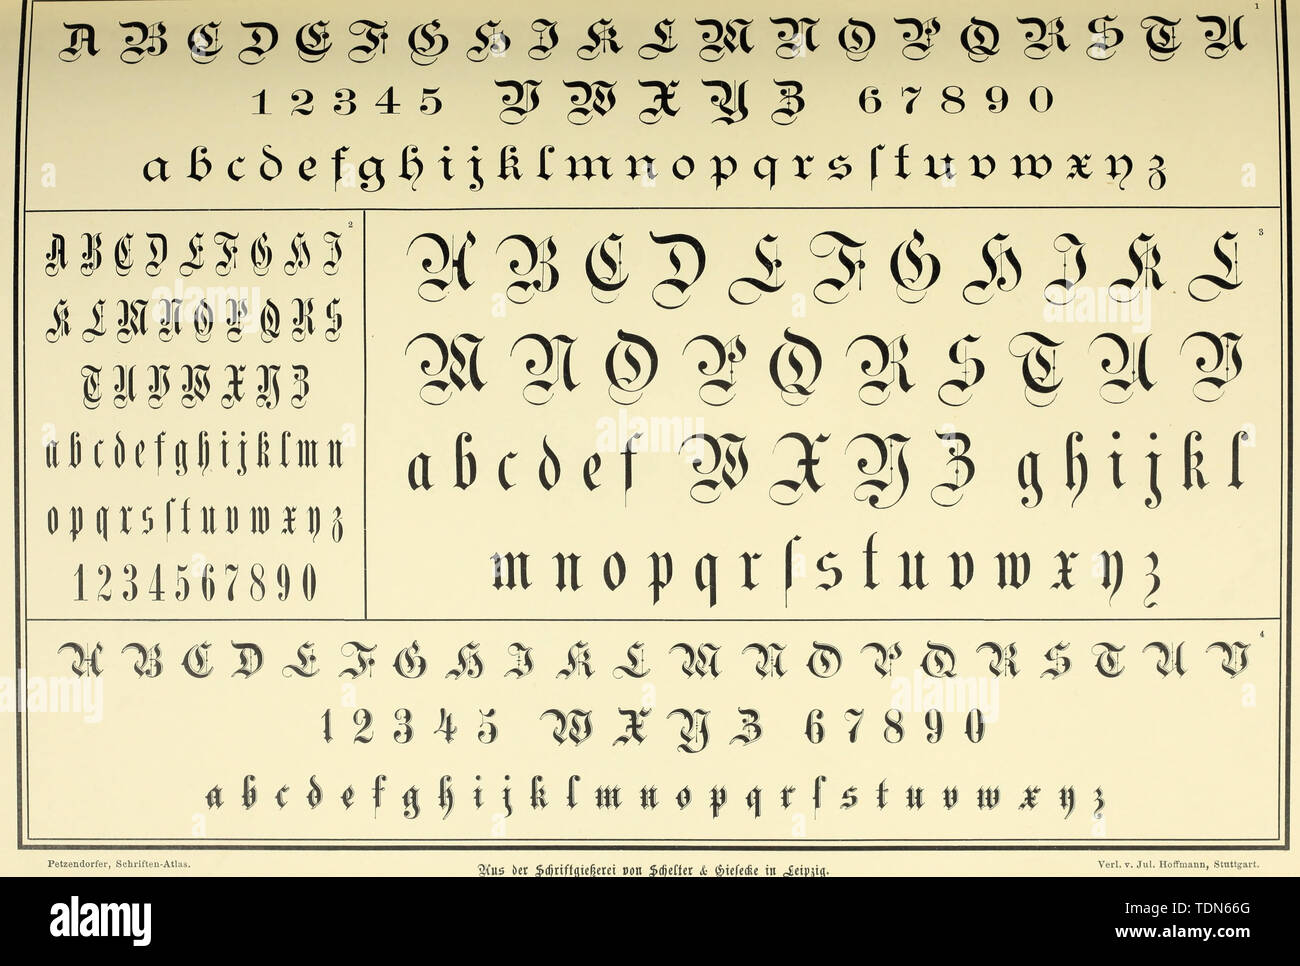 1
A B C D E F G H I K L M N O P Q R S T U
1 2 3 4 5 V W X Y Z 6 7 8 9 0
a b c d e f g h i j k l m n o p q r s ſ t u v w x y z
2
A B C D E F G H I
K L M N O P Q R S
T U V W X Y Z
a b c d e f g h i j k l m n
o p q r s ſ t u v w x y z
1 2 3 4 5 6 7 8 9 0
3
A B C D E F G H I K L
M N O P Q R S T U V
a b c d e f W X Y Z g h i j k l
m n o p q r ſ s t u v w x y z
4
A B C D E F G H I K L M N O P Q R S T U V
1 2 3 4 5 W X Y Z 6 7 8 9 0
a b c d e f g h i j k l m n o p q r ſ s t u v w x y z
Petzendorfer, Schriften-Atlas.
Aus der Schriftgießerei von Schelter & Gieſecke in Leipzig.
Verl. v. Jul. Hoffmann, Stuttgart.
alamy
Image ID: TDN66G
www.alamy.com